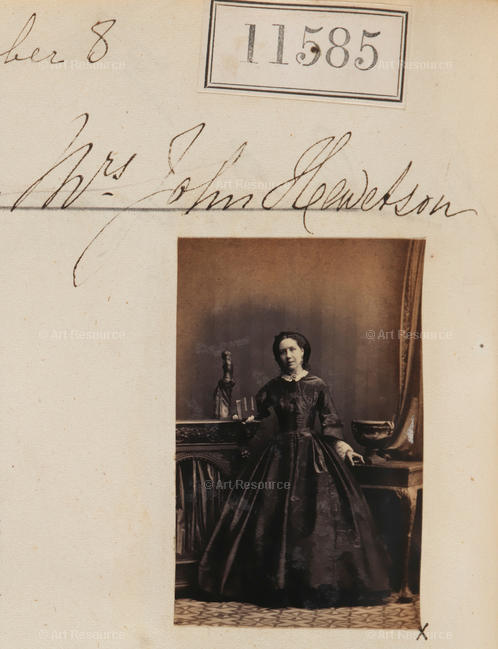 ber 8
11585
Mrs John Hewetson
x
© Art Resource
© Art Resource
© Art Resource
© Art Resource
© Art Resource
© Art Resource
© Art Resource
© Art Resource